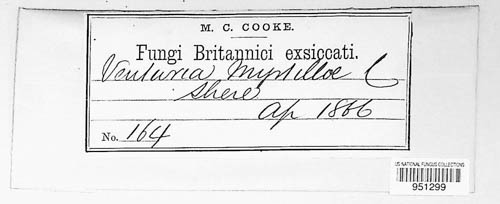 M. C. COOKE.
Fungi Britannici exsiccati.
Venturia Myrtilloe C
Shere
Ap 1866
No. 164
US NATIONAL FUNGUS COLLECTIONS
951299